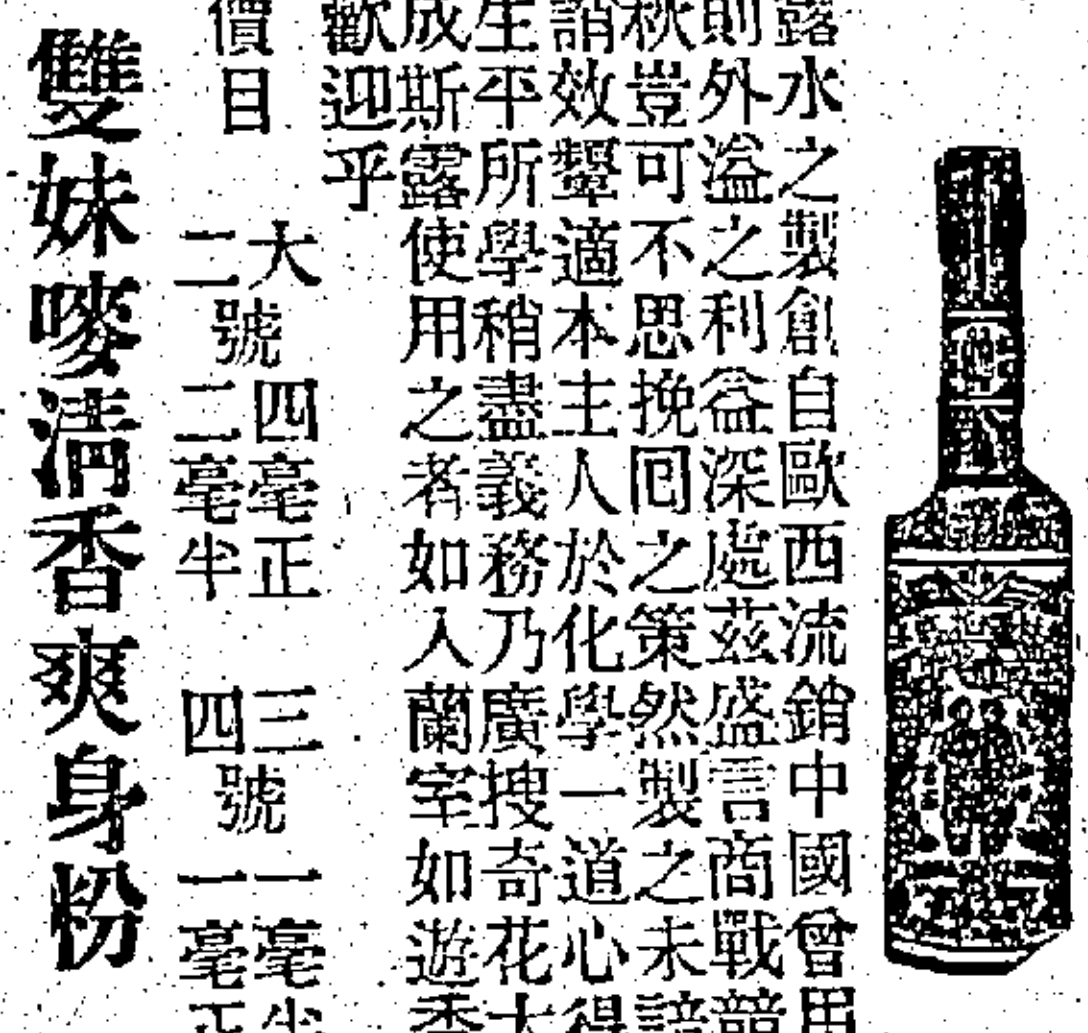 露水之製創自歐西流銷中國曾用
則外溢之利益深處茲盛言商戰競
秋豈可不思挽囘之策然製之未諳
誚效顰適本主人於化學一道心得
生平所學稍盡義務乃廣搜奇花大
成斯露使用之者如入蘭室如遊香
歡迎乎
價目
大二號
四毫正
二毫半
三四號
一毫半
一毫正
雙妹嘜清香爽身粉